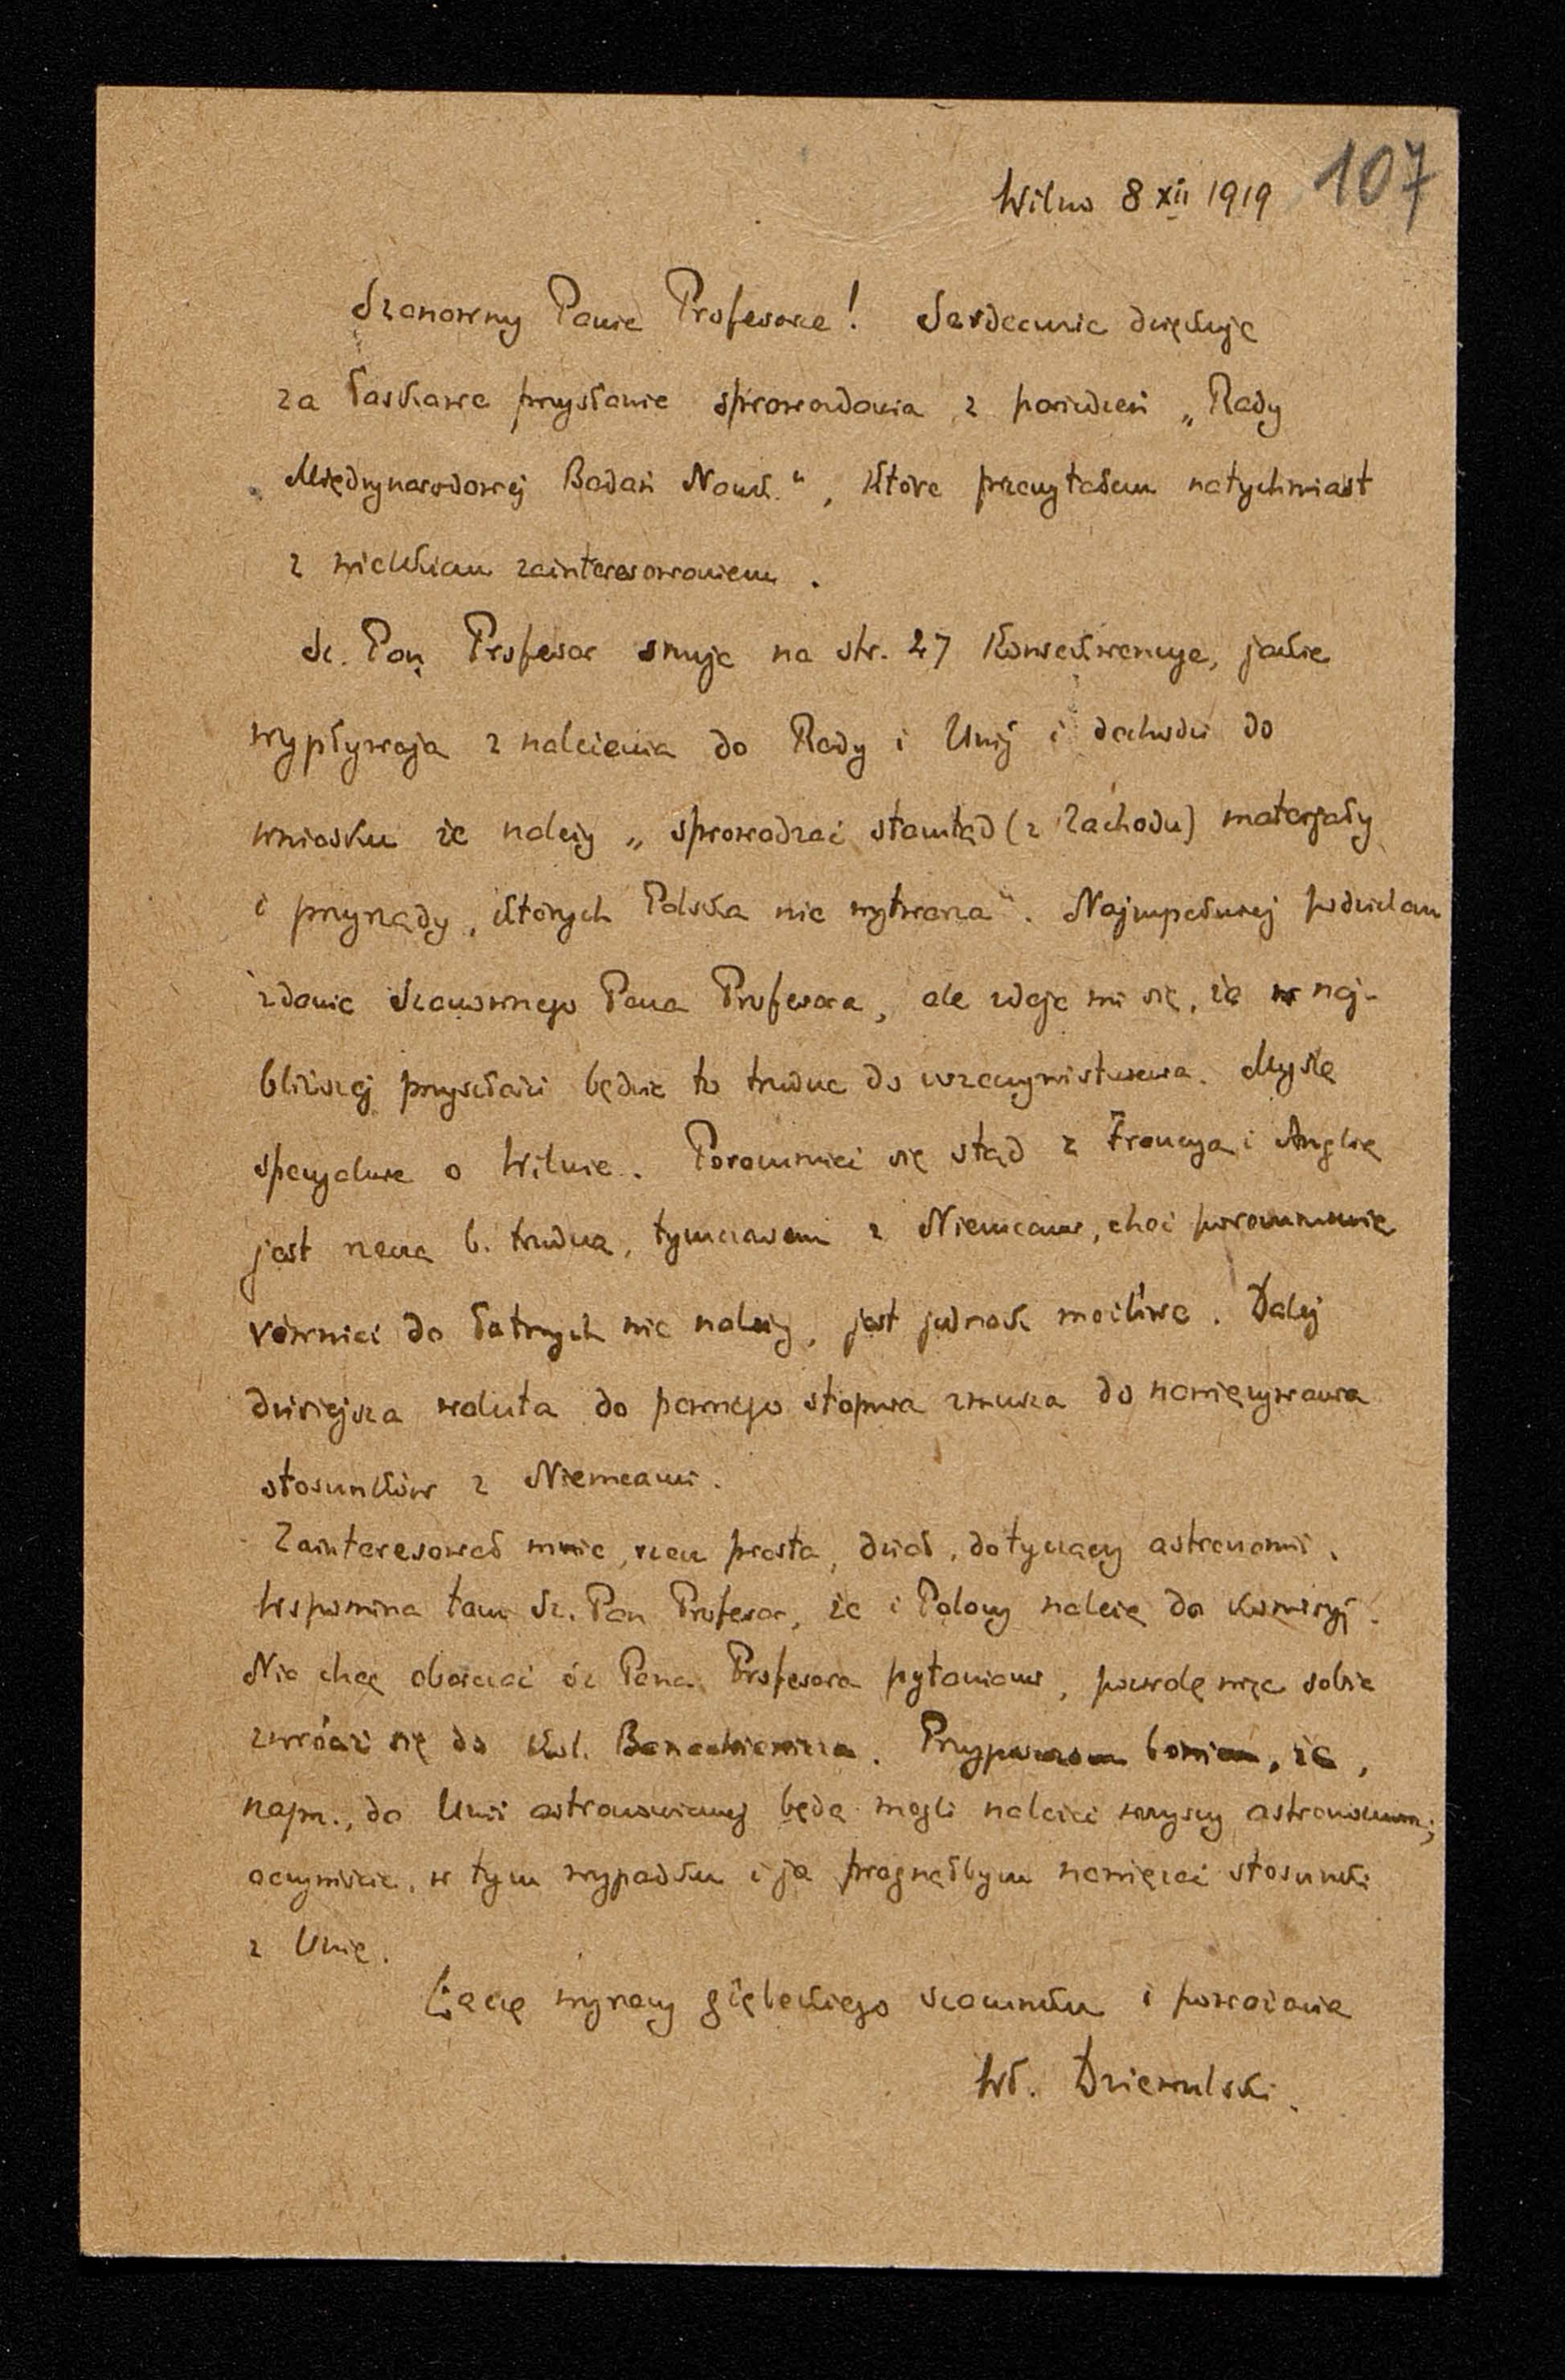 Wilno 8 XII 1919 107
Szanowny Panie Profesorze! Serdecznie dziękuję
za łaskawe przysłanie sprawozdania z posiedzeń „Rady
Międzynarodowej Badań Nauk.“, które przeczytałem natychmiast
z wielkiem zainteresowaniem.
Sz. Pan Profesor snuje na str. 27 konsekwencye, jakie
wypływają z należenia do Rady i Unij i dochodzi do
wniosku że należy „sprowadzać stamtąd (z Zachodu) materjały
i przyrządy, których Polska nie wytwarza“. Najzupełniej podzielam
zdanie Szanownego Pana Profesora, ale zdaje mi się, że w naj-
bliższej przyszłości będzie to trudne do urzeczywistnienia. Myślę
specyalnie o Wilnie. Porozumieć się stąd z Francyą i Anglią
jest rzeczą b. trudną, tymczasem z Niemcami, choć porozumienie
również do łatwych nie należy, jest jednak możliwe. Dalej
dzisiejsza waluta do pewnego stopnia zmusza do nawiązywania
stosunków z Niemcami.
Zainteresował mnie, rzecz prosta, dział, dotyczący astronomii.
Wspomina tam Sz. Pan Profesor, że i Polacy należą do komisyj.
Nie chcę obarczać Sz Pana Profesora pytaniami, pozwolę więc sobie
zwrócić się do kol. Banachiewicza. Przypuszczam bowiem, że,
napr., do Unii astronomicznej będą mogli należeć wszyscy astronomowie;
oczywiście, w tym wypadku i ja pragnąłbym nawiązać stosunki
z Unią.
Łączę wyrazy głębokiego szacunku i poważania
Wł. Dziewulski.